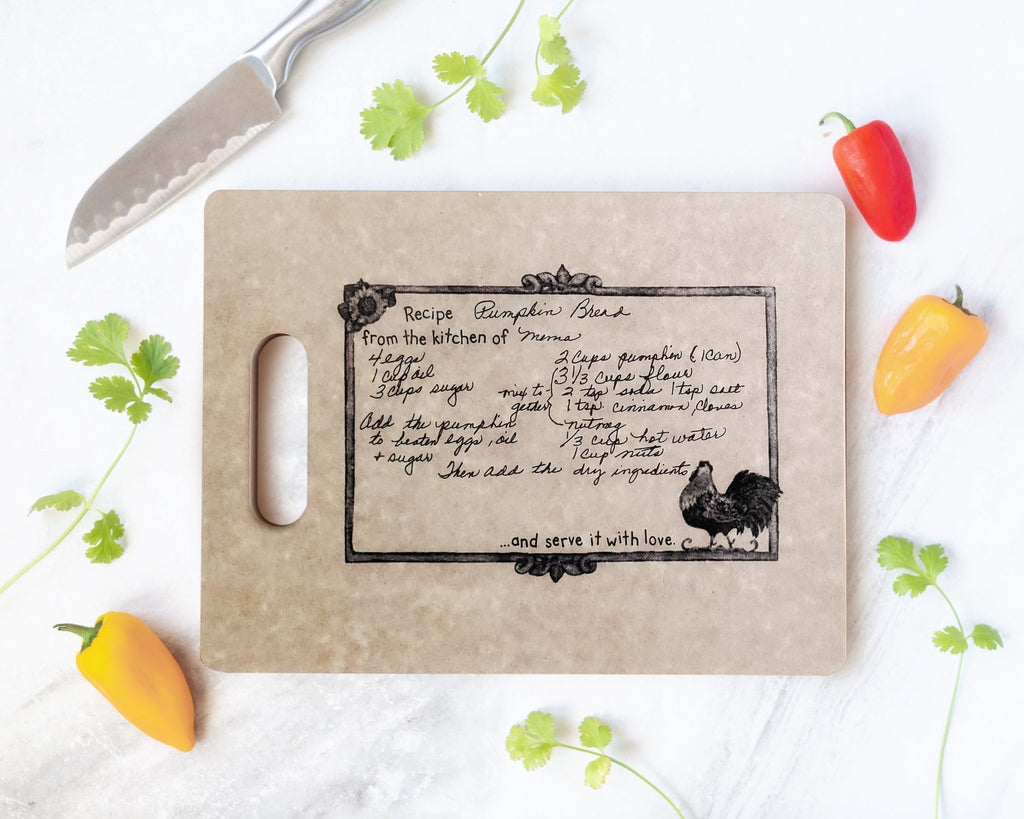 Recipe Pumpkin Bread
from the kitchen of Mema
4 eggs
1 cup oil
3 cups sugar
Add the pumpkin
to beaten eggs, oil
+ sugar
2 cups pumpkin (1 can)
3 1/3 cups flour
mix to- 2 tsp soda 1 tsp salt
gether 1 tsp. cinnamon, cloves
nutmeg
1/3 cup hot water
1 cup nuts
Then add the dry ingredients
...and serve it with love.